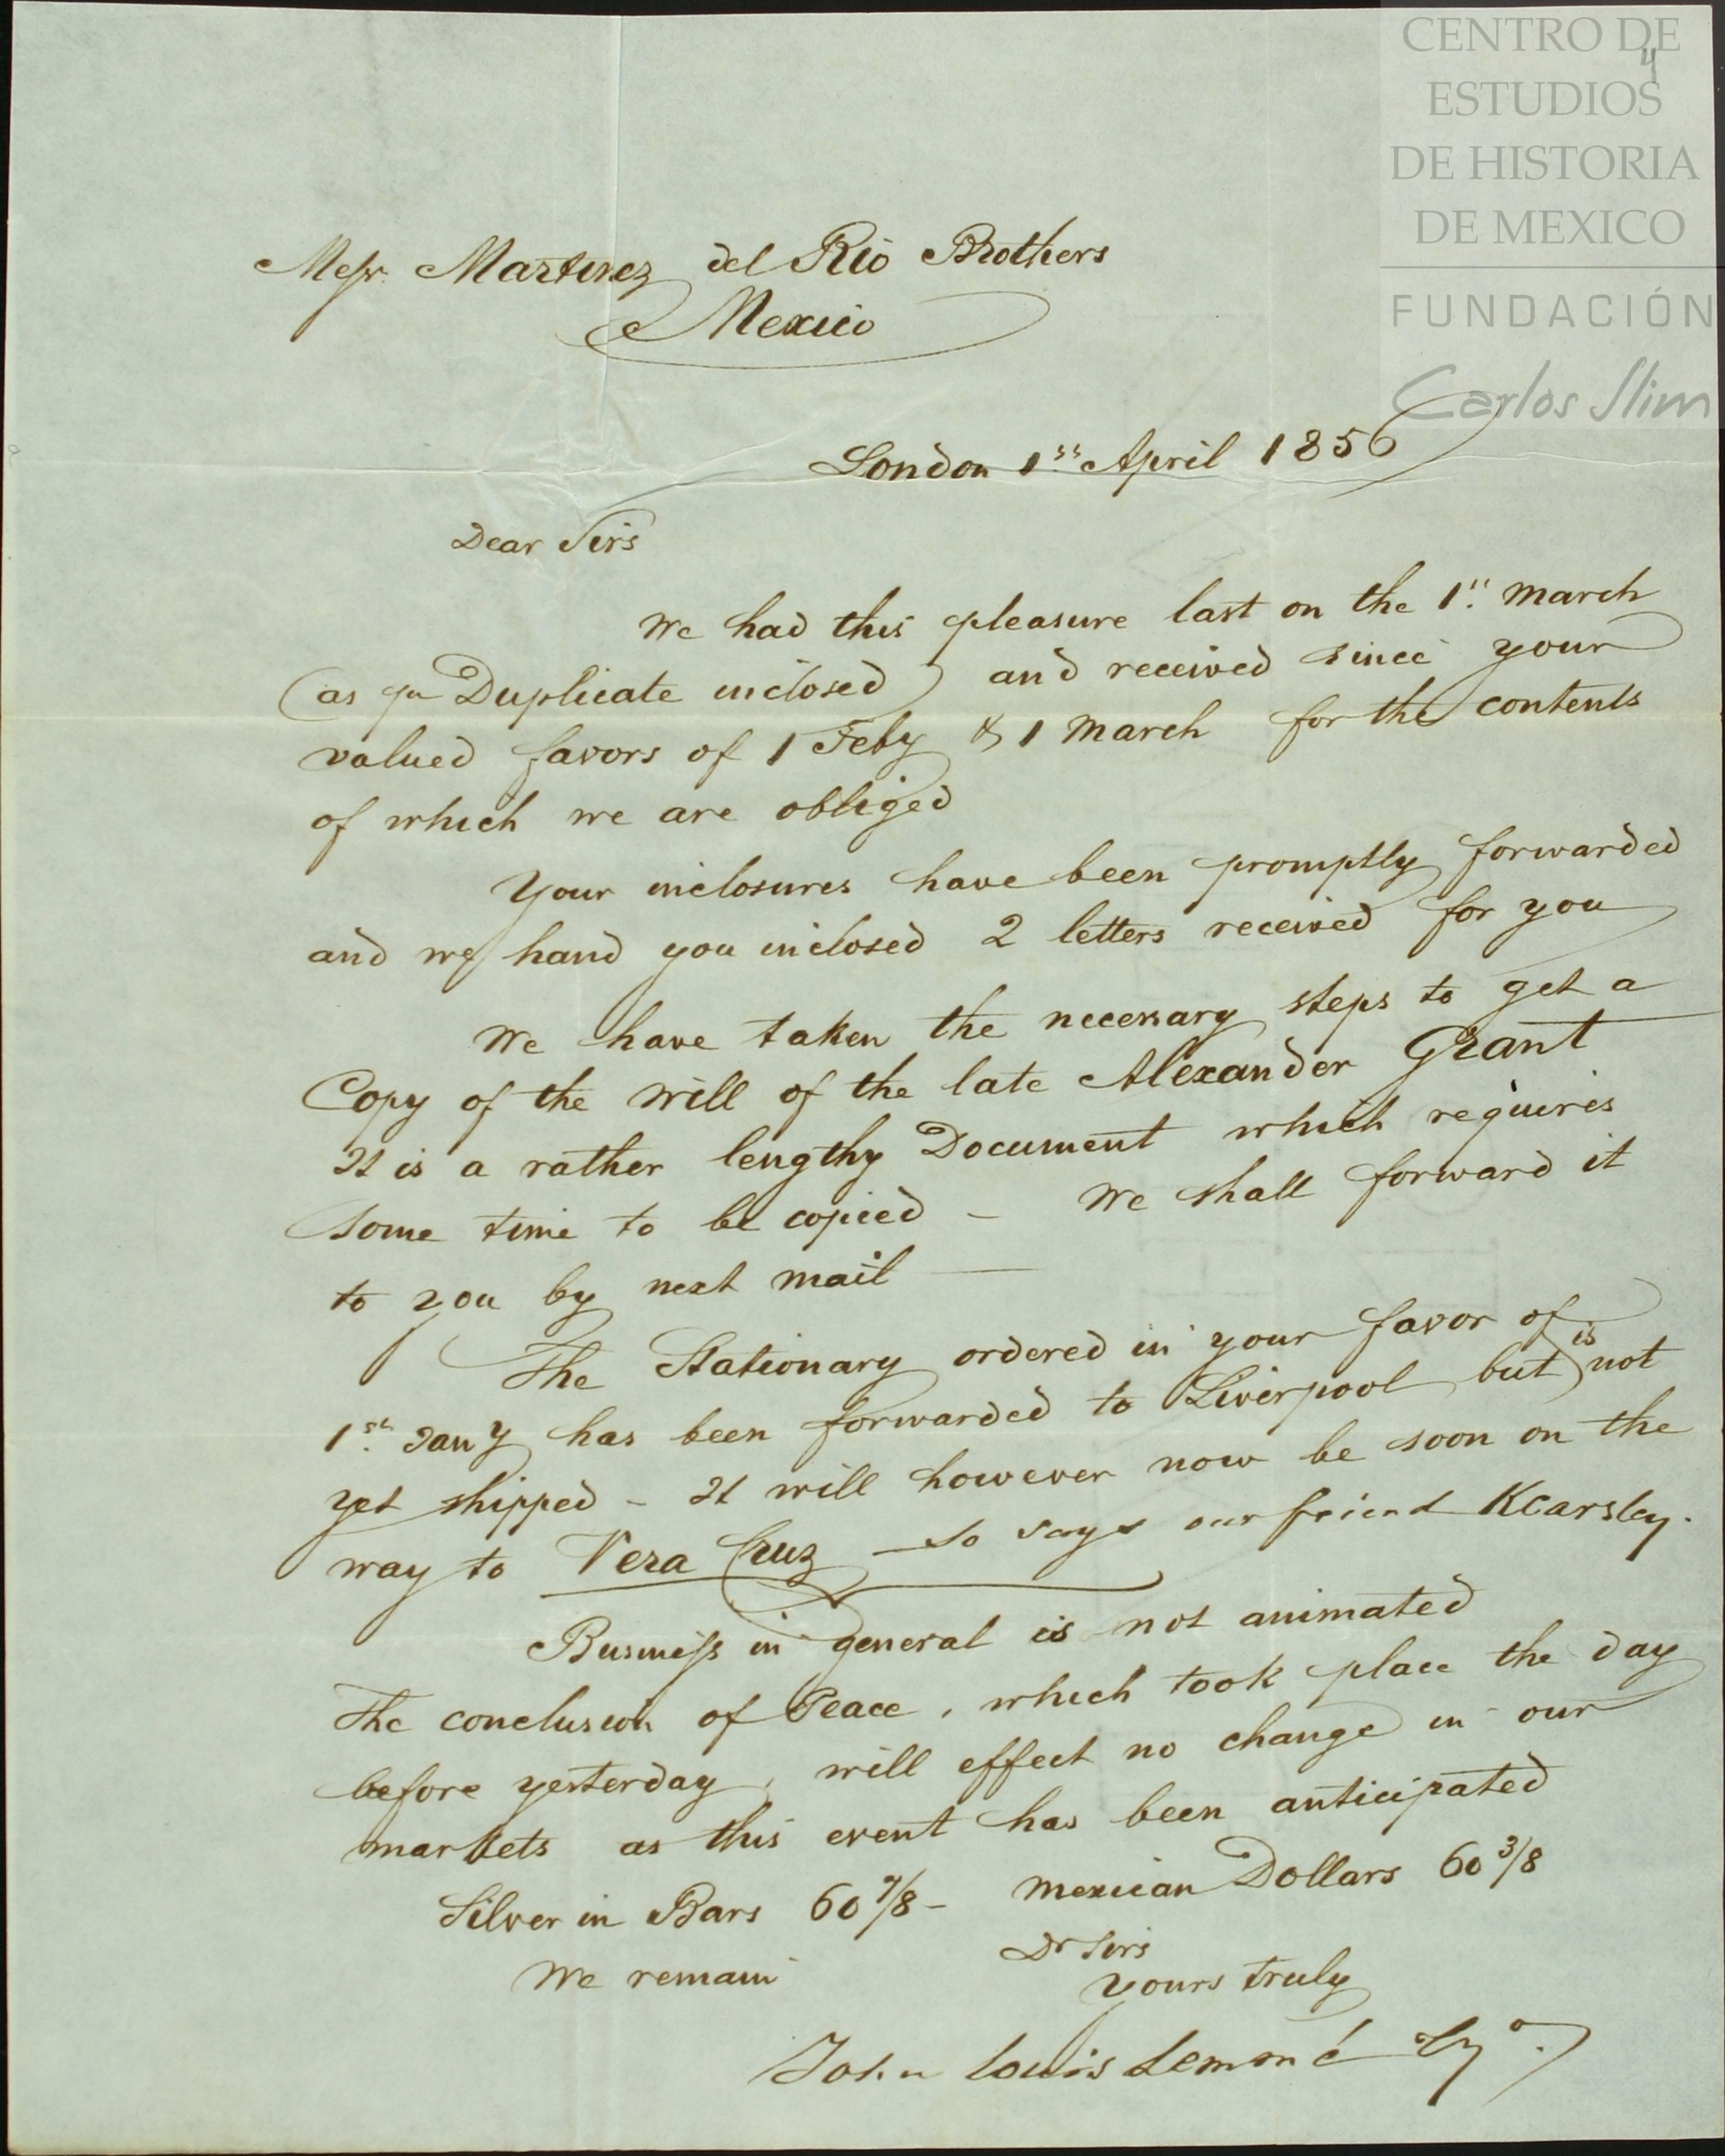 CENTRO DE
ESTUDIOS
DE HISTORIA
DE MEXICO
FUNDACIÓN
Carlos Slim
4
Messr. Martinez del Rio Brothers
Mexico
London 1st April 1856
Dear Sirs
We had this pleasure last on the 1st March
(as pr Duplicate inclosed) and received since your
valued favors of 1 Feby & 1 March for the contents
of which we are obliged
Your inclosures have been promptly forwarded
and we hand you inclosed 2 letters received for you
We have taken the necessary steps to get a
Copy of the Will of the late Alexander Grant
It is a rather lengthy Document which requires
some time to be copied – We shall forward it
to you by next mail —
The Stationary ordered in your favor of
1st Jany has been forwarded to Liverpool but is not
yet shipped – It will however now be soon on the
way to Vera Cruz – so says our friend Kearsley.
Business in general is not animated
The conclusion of Peace, which took place the day
before yesterday, will effect no change in our
markets as this event has been anticipated
Silver in Bars 60 7/8 – Mexican Dollars 60 3/8
We remain Dr Sirs
yours truly
John Louis Lemmé Cyo.